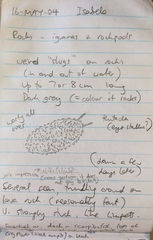 16-MAY-04 Isabela
Rocks - iguanas & rockpools
weird "slugs" on rocks
(in and out of water)
Up to 7 or 8 cm long
Dark grey (= colour of rocks)
warty all
over
tentacles
(eye stalks?)
(drawn a few
days later)
Several seen, trundling around on
lava rock (reasonably fast)
V. strongly stuck, like limpets.